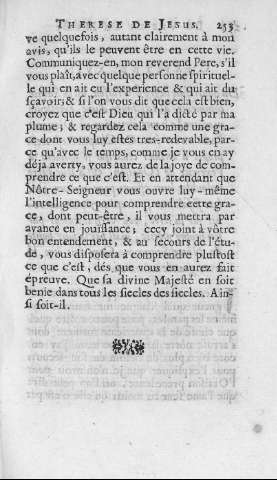 THERESE DE JESUS. 253
ve quelquefois, autant clairement à mon
avis, qu'ils le peuvent être en cette vie.
Communiquez-en, mon reverend Pere, s'il
vous plaît, avec quelque personne spirituel-
le qui en ait eu l'experience & qui ait du
sçavoir; & si l'on vous dit que cela est bien,
croyez que c'est Dieu qui l'a dicté par ma
plume; & regardez cela comme une gra-
ce dont vous luy estes tres-redevable, par-
ce qu'avec le temps, comme je vous en ay
déja averty, vous aurez de la joye de com-
prendre ce que c'est. Et en attendant que
Nôtre-Seigneur vous ouvre luy-même
l'intelligence pour comprendre cette gra-
ce, dont peut-être, il vous mettra par
avance en joüissance; cecy joint à vôtre
bon entendement, & au secours de l'étu-
de, vous disposera à comprendre plustost
ce que c'est, dés que vous en aurez fait
épreuve. Que sa divine Majesté en soit
benie dans tous les siecles des siecles. Ain-
si soit-il.